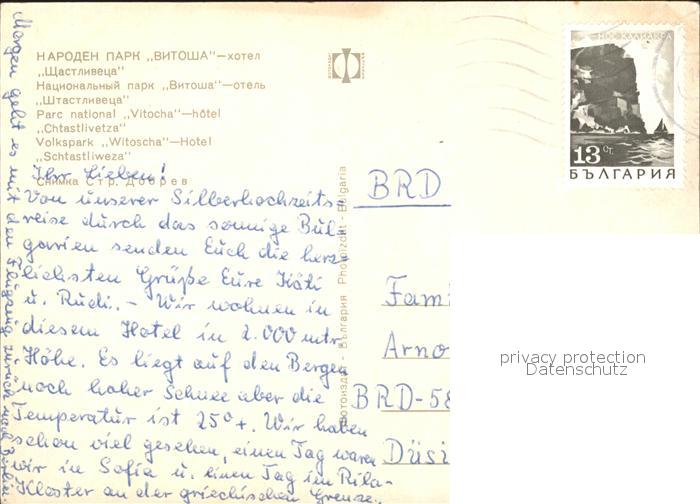 НАРОДЕН ПАРК „ВИТОША"—хотел
„Щастливеца"
Национальный парк „Витоша"—отель
„Штастливеца"
Parc national „Vitocha"—hôtel
„Chtastlivetza"
Volkspark „Witoscha"—Hotel
„Schtastliweza"
Снимка Стр. Добрев
Ihr Lieben!
Von unserer Silberhochzeits-
reise durch das sonnige Bul-
garien senden Euch die herz-
lichsten Grüße Eure Käti
u. Rudi. - Wir wohnen in
diesem Hotel in 2.000 mtr
Höhe. Es liegt auf den Bergen
noch hoher Schnee aber die
Temperatur ist 25°+. Wir haben
schon viel gesehen, einen Tag waren
wir in Sofia u. einen Tag im Rila-
Kloster an der griechischen Grenze.
Morgen geht es mit dem Flugzeug zurück nach Berlin.
Фотоиздат - България Photoizdat - Bulgaria
НОС КАЛИАКРА
13 СТ.
БЪЛГАРИЯ
BRD
Fami
Arno
BRD-58
Düsi
privacy protection
Datenschutz